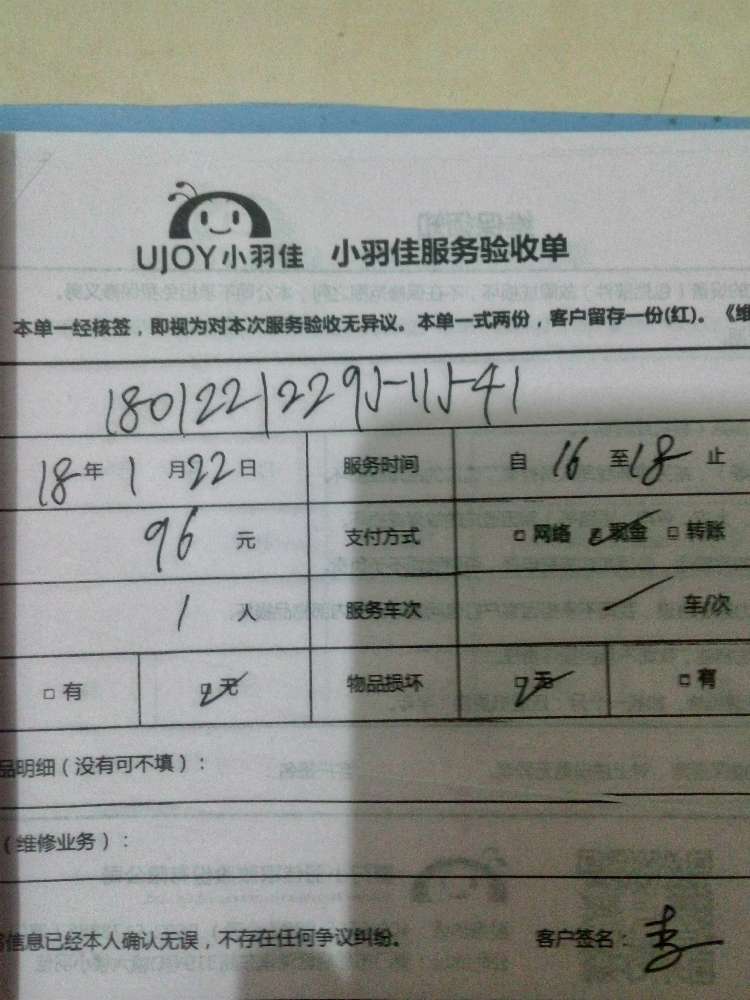 UJOY小羽佳 小羽佳服务验收单
本单一经核签，即视为对本次服务验收无异议。本单一式两份，客户留存一份(红)。《维
18年1月22日 服务时间 自16至18止
96元 支付方式 □网络 ☑现金 □转账
1人 服务车次 / 车/次
□有 ☑无 物品损坏 ☑无 □有
品明细（没有可不填）：
（维修业务）：
信息已经本人确认无误，不存在任何争议纠纷。 客户签名：